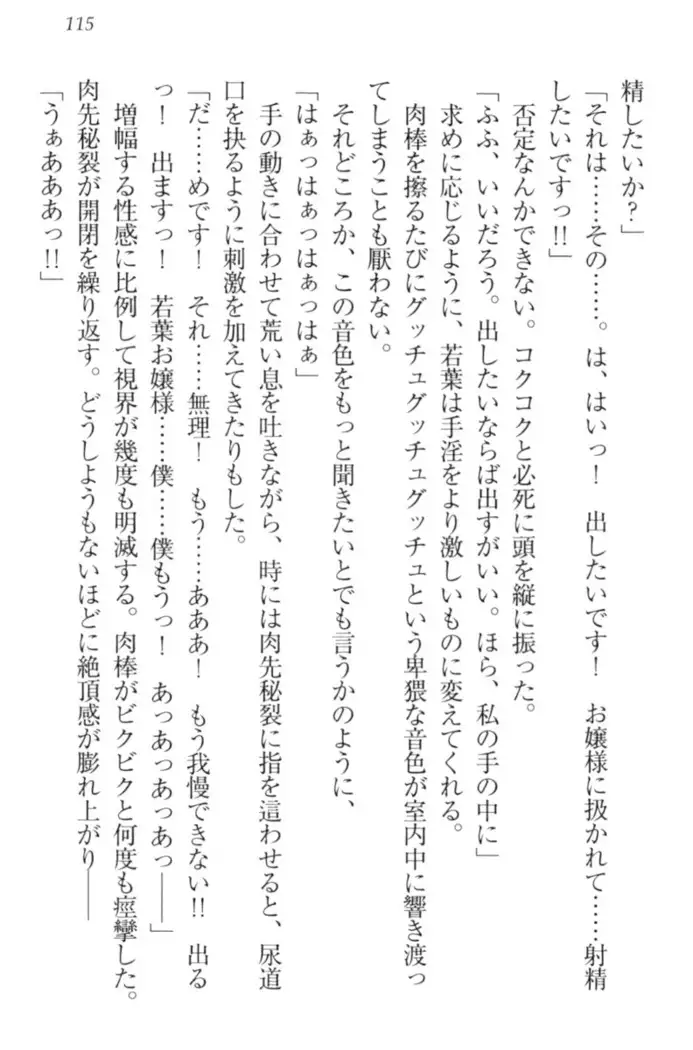 115
精したいか？」
「それは……その……。は、はいっ！　出したいです！　お嬢様に扱かれて……射精
したいですっ!!」
否定なんかできない。コクコクと必死に頭を縦に振った。
「ふふ、いいだろう。出したいならば出すがいい。ほら、私の手の中に」
求めに応じるように、若葉は手淫をより激しいものに変えてくれる。
肉棒を擦るたびにグッチュグッチュグッチュという卑猥な音色が室内中に響き渡っ
てしまうことも厭わない。
それどころか、この音色をもっと聞きたいとでも言うかのように、
「はぁっはぁっはぁっはぁ」
手の動きに合わせて荒い息を吐きながら、時には肉先秘裂に指を這わせると、尿道
口を抉るように刺激を加えてきたりもした。
「だ……めです！　それ……無理！　もう……あああ！　もう我慢できない!!　出る
っ！　出ますっ！　若葉お嬢様……僕……僕もうっ！　あっあっあっあっ――」
増幅する性感に比例して視界が幾度も明滅する。肉棒がビクビクと何度も痙攣した。
肉先秘裂が開閉を繰り返す。どうしようもないほどに絶頂感が膨れ上がり――
「うぁああああっ!!」